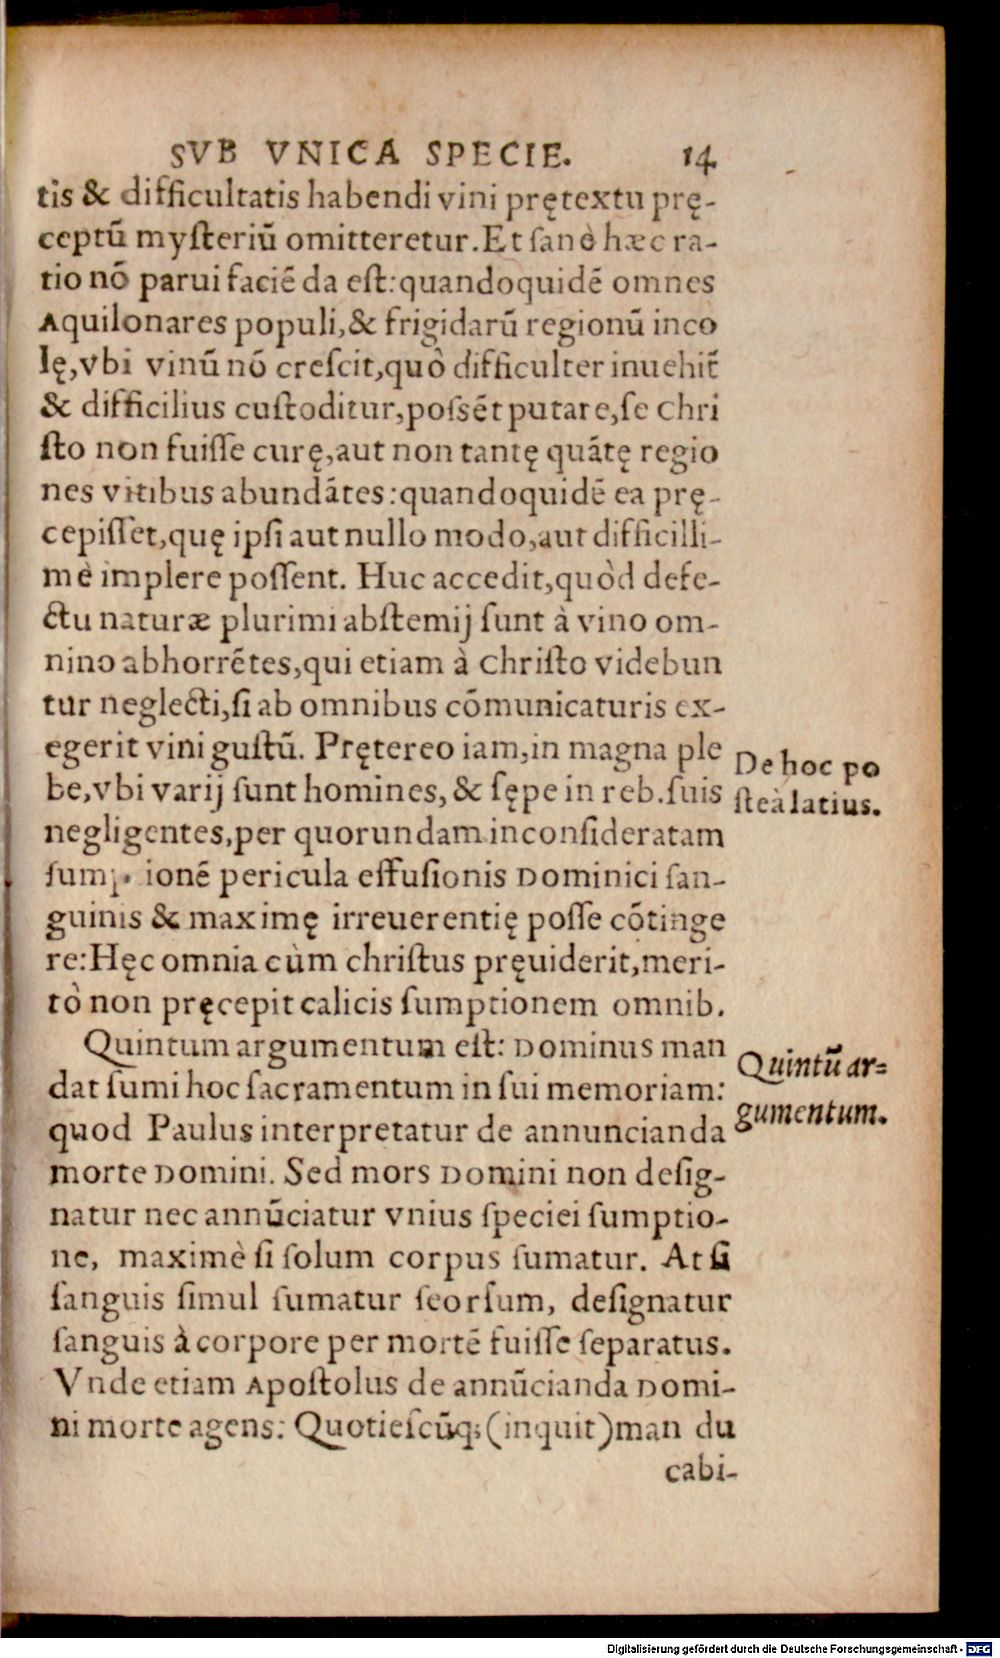 SVB VNICA SPECIE. 14
tis & difficultatis habendi vini prętextu prę-
ceptũ mysteriũ omitteretur. Et sanè hæc ra-
tio nõ parui faciẽda est: quandoquidẽ omnes
Aquilonares populi, & frigidarũ regionũ inco
lę, vbi vinũ nõ crescit, quò difficulter inuehit̃
& difficilius custoditur, possẽt putare, se Chri
sto non fuisse curę, aut non tantę quãtę regio
nes vitibus abundãtes: quandoquidẽ ea prę-
cepisset, quę ipsi aut nullo modo, aut difficilli-
mè implere possent. Huc accedit, quòd defe-
ctu naturæ plurimi abstemij sunt à vino om-
nino abhorrẽtes, qui etiam à Christo videbun
tur neglecti, si ab omnibus cõmunicaturis ex-
egerit vini gustũ. Prętereo iam, in magna ple
be, vbi varij sunt homines, & sępe in reb. suis
negligentes, per quorundam inconsideratam
sumptionẽ pericula effusionis Dominici san-
guinis & maximę irreuerentię posse cõtinge
re: Hęc omnia cùm Christus pręuiderit, meri-
tò non pręcepit calicis sumptionem omnib.
De hoc po
steà latius.
Quintum argumentum est: Dominus man
dat sumi hoc sacramentum in sui memoriam:
quod Paulus interpretatur de annuncianda
morte Domini. Sed mors Domini non desig-
natur nec annũciatur vnius speciei sumptio-
ne, maximè si solum corpus sumatur. At si
sanguis simul sumatur seorsum, designatur
sanguis à corpore per mortẽ fuisse separatus.
Vnde etiam Apostolus de annũcianda Domi-
ni morte agens: Quotiescũq; (inquit) man du
Quintũ ar-
gumentum.
cabi-
Digitalisierung gefördert durch die Deutsche Forschungsgemeinschaft - DFG